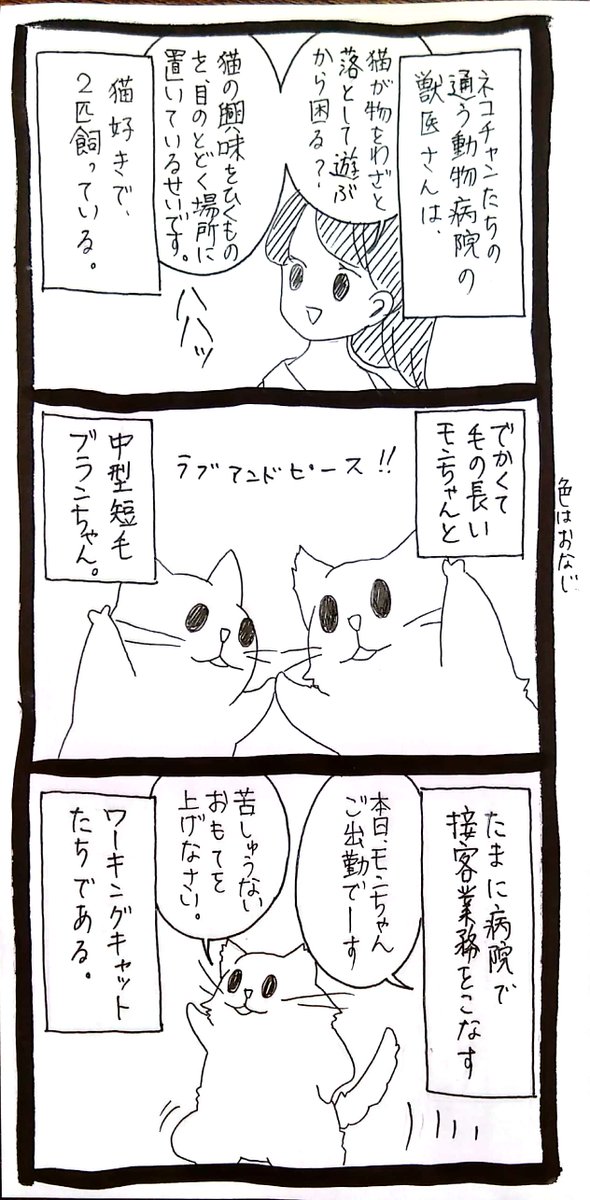 ネコチャンたちの
通う動物病院の
獣医さんは、
猫が物をわざと
落として遊ぶ
から困る？
猫の興味をひくもの
を、目のとどく場所に
置いているせいです。
ハハッ
猫好きで、
2匹飼っている。
でかくて
毛の長い
モンちゃんと
ラブアンドピース!!
中型短毛
ブランちゃん。
色はおなじ
たまに病院で
接客業務をこなす
本日、モンちゃん
ご出勤でーす
苦しゅうない
おもてを
上げなさい。
ワーキングキャット
たちである。